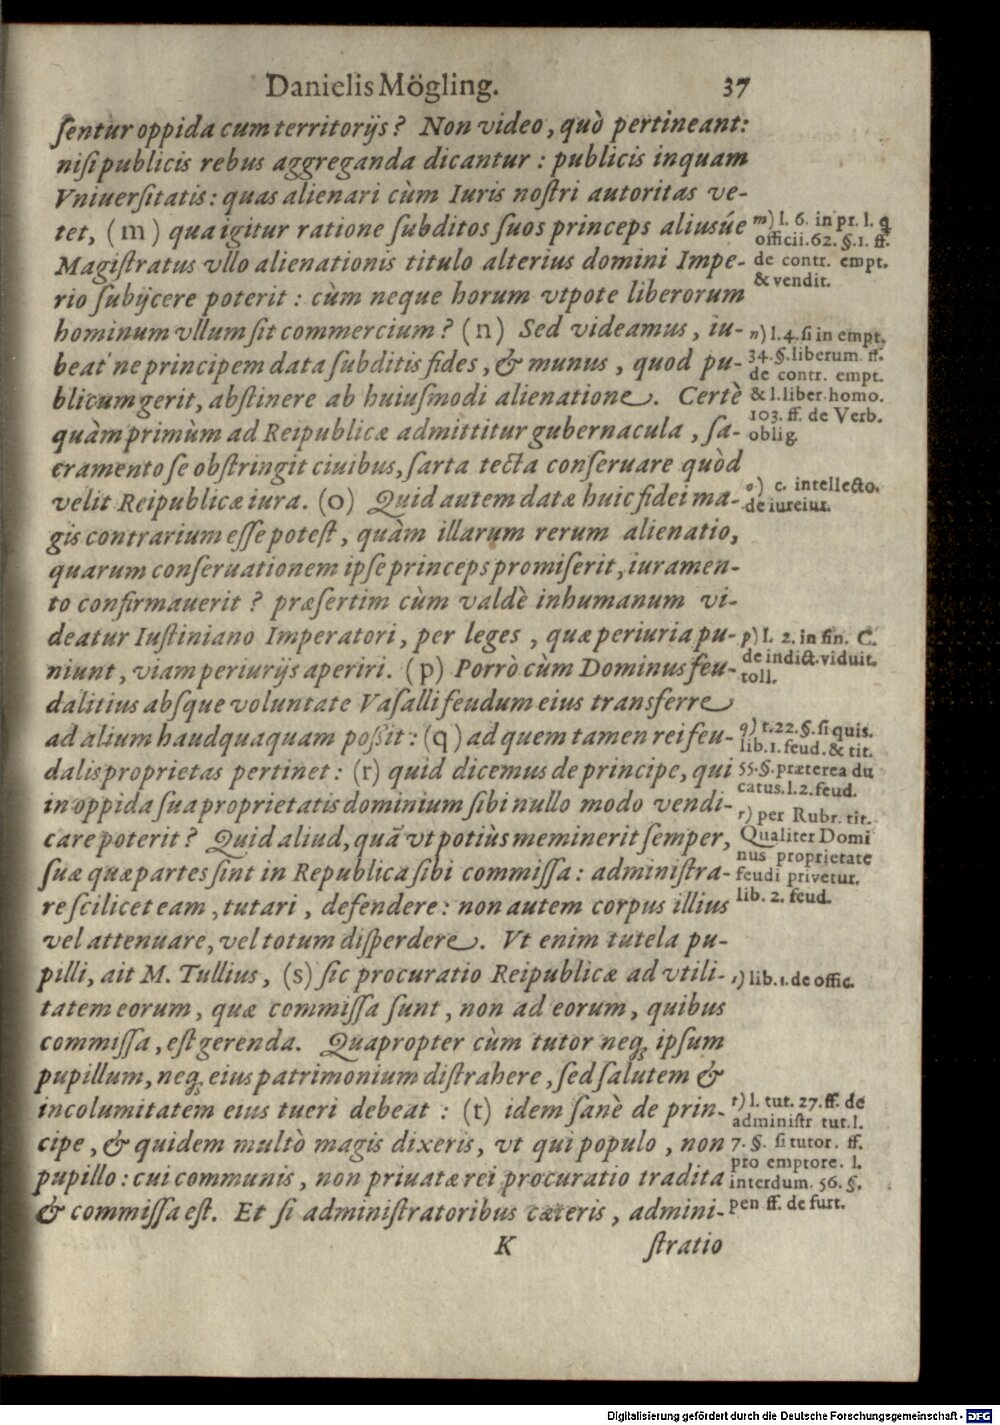 Danielis Mögling. 37
ſentur oppida cum territorijs? Non video, quò pertineant:
niſi publicis rebus aggreganda dicantur: publicis inquam
Vniuerſitatis: quas alienari cùm Iuris noſtri autoritas ve-
tet, (m) qua igitur ratione ſubditos ſuos princeps aliusúe
Magiſtratus vllo alienationis titulo alterius domini Impe-
rio ſubijcere poterit: cùm neque horum vtpote liberorum
hominum vllum ſit commercium? (n) Sed videamus, iu-
beat ne principem data ſubditis fides, & munus, quod pu-
blicum gerit, abſtinere ab huiuſmodi alienatione. Certè
quàm primùm ad Reipublicæ admittitur gubernacula, ſa-
cramento ſe obſtringit ciuibus, ſarta tecta conſeruare quòd
velit Reipublicæ iura. (o) Quid autem datæ huic fidei ma-
gis contrarium eſſe poteſt, quàm illarum rerum alienatio,
quarum conſeruationem ipſe princeps promiſerit, iuramen-
to confirmauerit? præſertim cùm valdè inhumanum vi-
deatur Iuſtiniano Imperatori, per leges, quæ periuria pu-
niunt, viam periurijs aperiri. (p) Porrò cùm Dominus feu-
dalitius abſque voluntate Vaſalli feudum eius transferre
ad alium haudquaquam poßit: (q) ad quem tamen rei feu-
dalis proprietas pertinet: (r) quid dicemus de principe, qui
in oppida ſua proprietatis dominium ſibi nullo modo vendi-
care poterit? Quid aliud, quā vt potiùs meminerit ſemper,
ſuæ quæ partes ſint in Republica ſibi commiſſa: adminiſtra-
re ſcilicet eam, tutari, defendere: non autem corpus illius
vel attenuare, vel totum diſperdere. Vt enim tutela pu-
pilli, ait M. Tullius, (s) ſic procuratio Reipublicæ ad vtili-
tatem eorum, quæ commiſſa ſunt, non ad eorum, quibus
commiſſa, eſt gerenda. Quapropter cùm tutor neq; ipſum
pupillum, neq; eius patrimonium diſtrahere, ſed ſalutem &
incolumitatem eius tueri debeat: (t) idem ſanè de prin-
cipe, & quidem multò magis dixeris, vt qui populo, non
pupillo: cui communis, non priuatæ rei procuratio tradita
& commiſſa eſt. Et ſi adminiſtratoribus cæteris, admini-
K ſtratio
m) l. 6. in pr. l. q
officii. 62. §. 1. ff.
de contr. empt.
& vendit.
n) l. 4. ſi in empt.
34. §. liberum. ff.
de contr. empt.
& l. liber homo.
103. ff. de Verb.
oblig.
o) c. intellecto.
de iureiur.
p) l. 2. in fin. C.
de indict. viduit.
toll.
q) t. 22. §. ſi quis.
lib. 1. feud. & tit.
55. §. præterea du
catus. l. 2. feud.
r) per Rubr. tit.
Qualiter Domi
nus proprietate
feudi privetur.
lib. 2. feud.
s) lib. 1. de offic.
t) l. tut. 27. ff. de
adminiſtr tut. l.
7. §. ſi tutor. ff.
pro emptore. l.
interdum. 56. §.
pen ff. de furt.
Digitalisierung gefördert durch die Deutsche Forschungsgemeinschaft - DFG